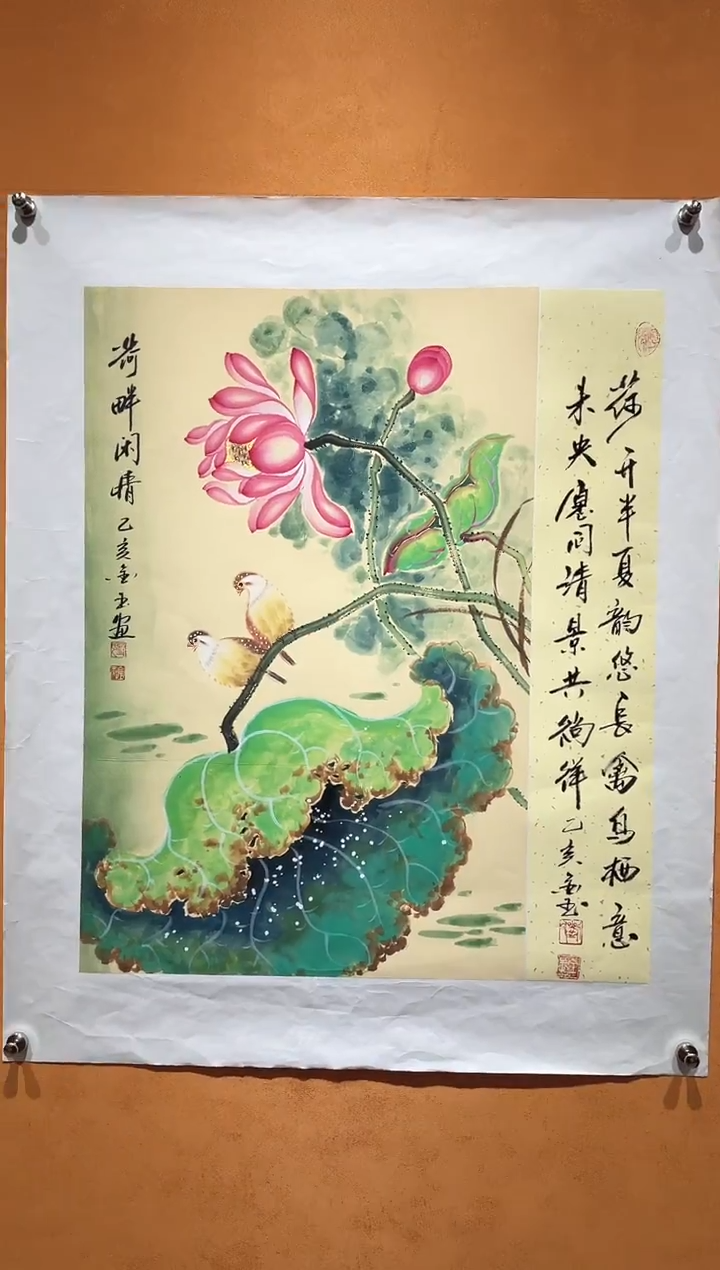 荷开半夏韵悠长禽鸟栖意
未央塵间清景共徜徉乙亥金玉
荷畔闲情乙亥金玉画